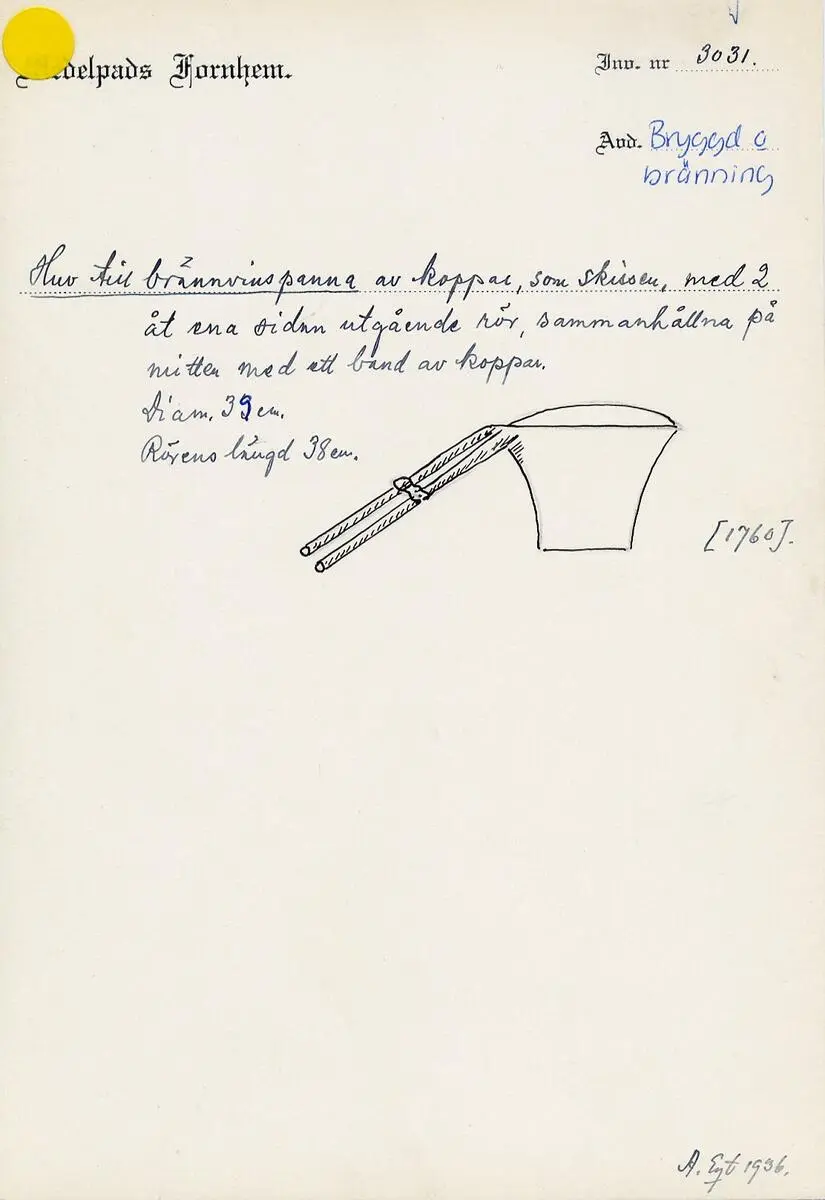 Medelpads Fornhem.
Inv. nr 3031.
Avd. Bryggd o
bränning
Huv till brännvinspanna av koppar, som skissen, med 2
åt ena sidan utgående rör, sammanhållna på
mitten med ett band av koppar.
Diam. 39 cm.
Rörens längd 38 cm.
[1760].
A. 1936.